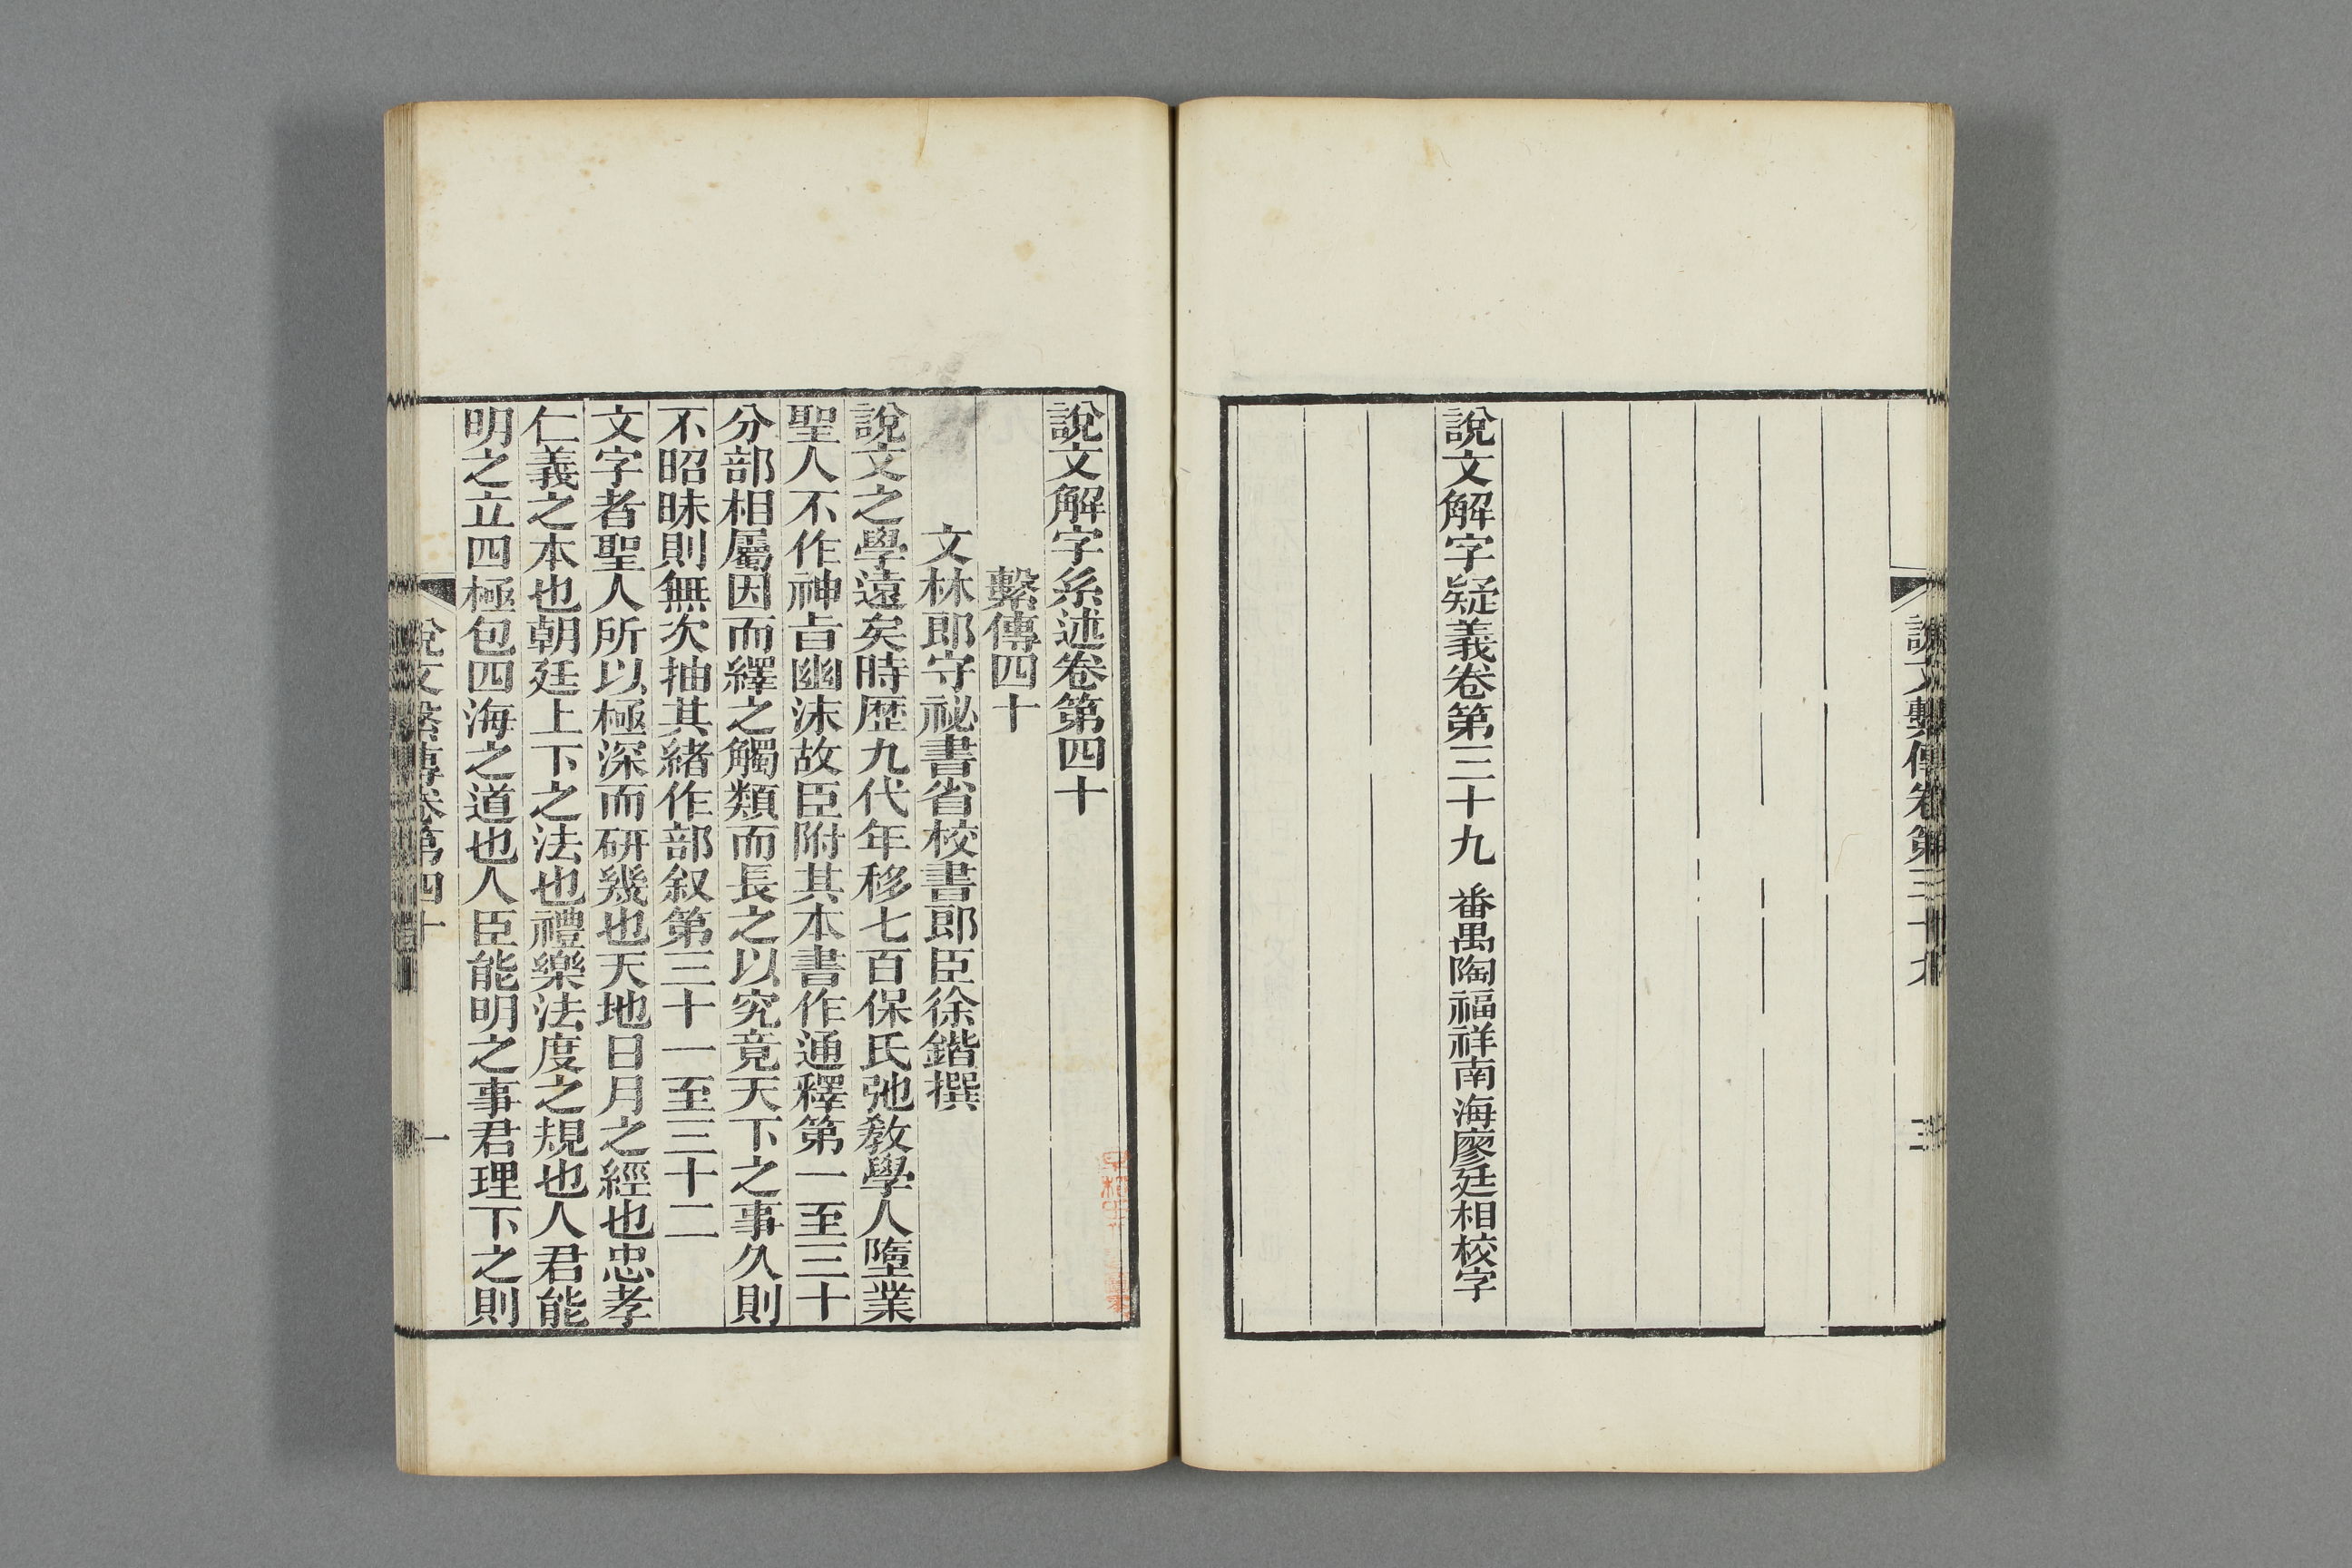 說文繫傳卷第三十九
三
說文解字疑義卷第三十九　番禺陶福祥南海廖廷相校字
說文解字系述卷第四十
繫傳四十
文林郎守祕書省校書郎臣徐鍇撰
說文之學遠矣時歷九代年移七百保氏弛教學人墮業
聖人不作神旨幽沫故臣附其本書作通釋第一至三十
分部相屬因而繹之觸類而長之以究竟天下之事久則
不昭昧則無次抽其緒作部叙第三十一至三十二
文字者聖人所以極深而研幾也天地日月之經也忠孝
仁義之本也朝廷上下之法也禮樂法度之規也人君能
明之立四極包四海之道也人臣能明之事君理下之則
說文繫傳卷第四十
一